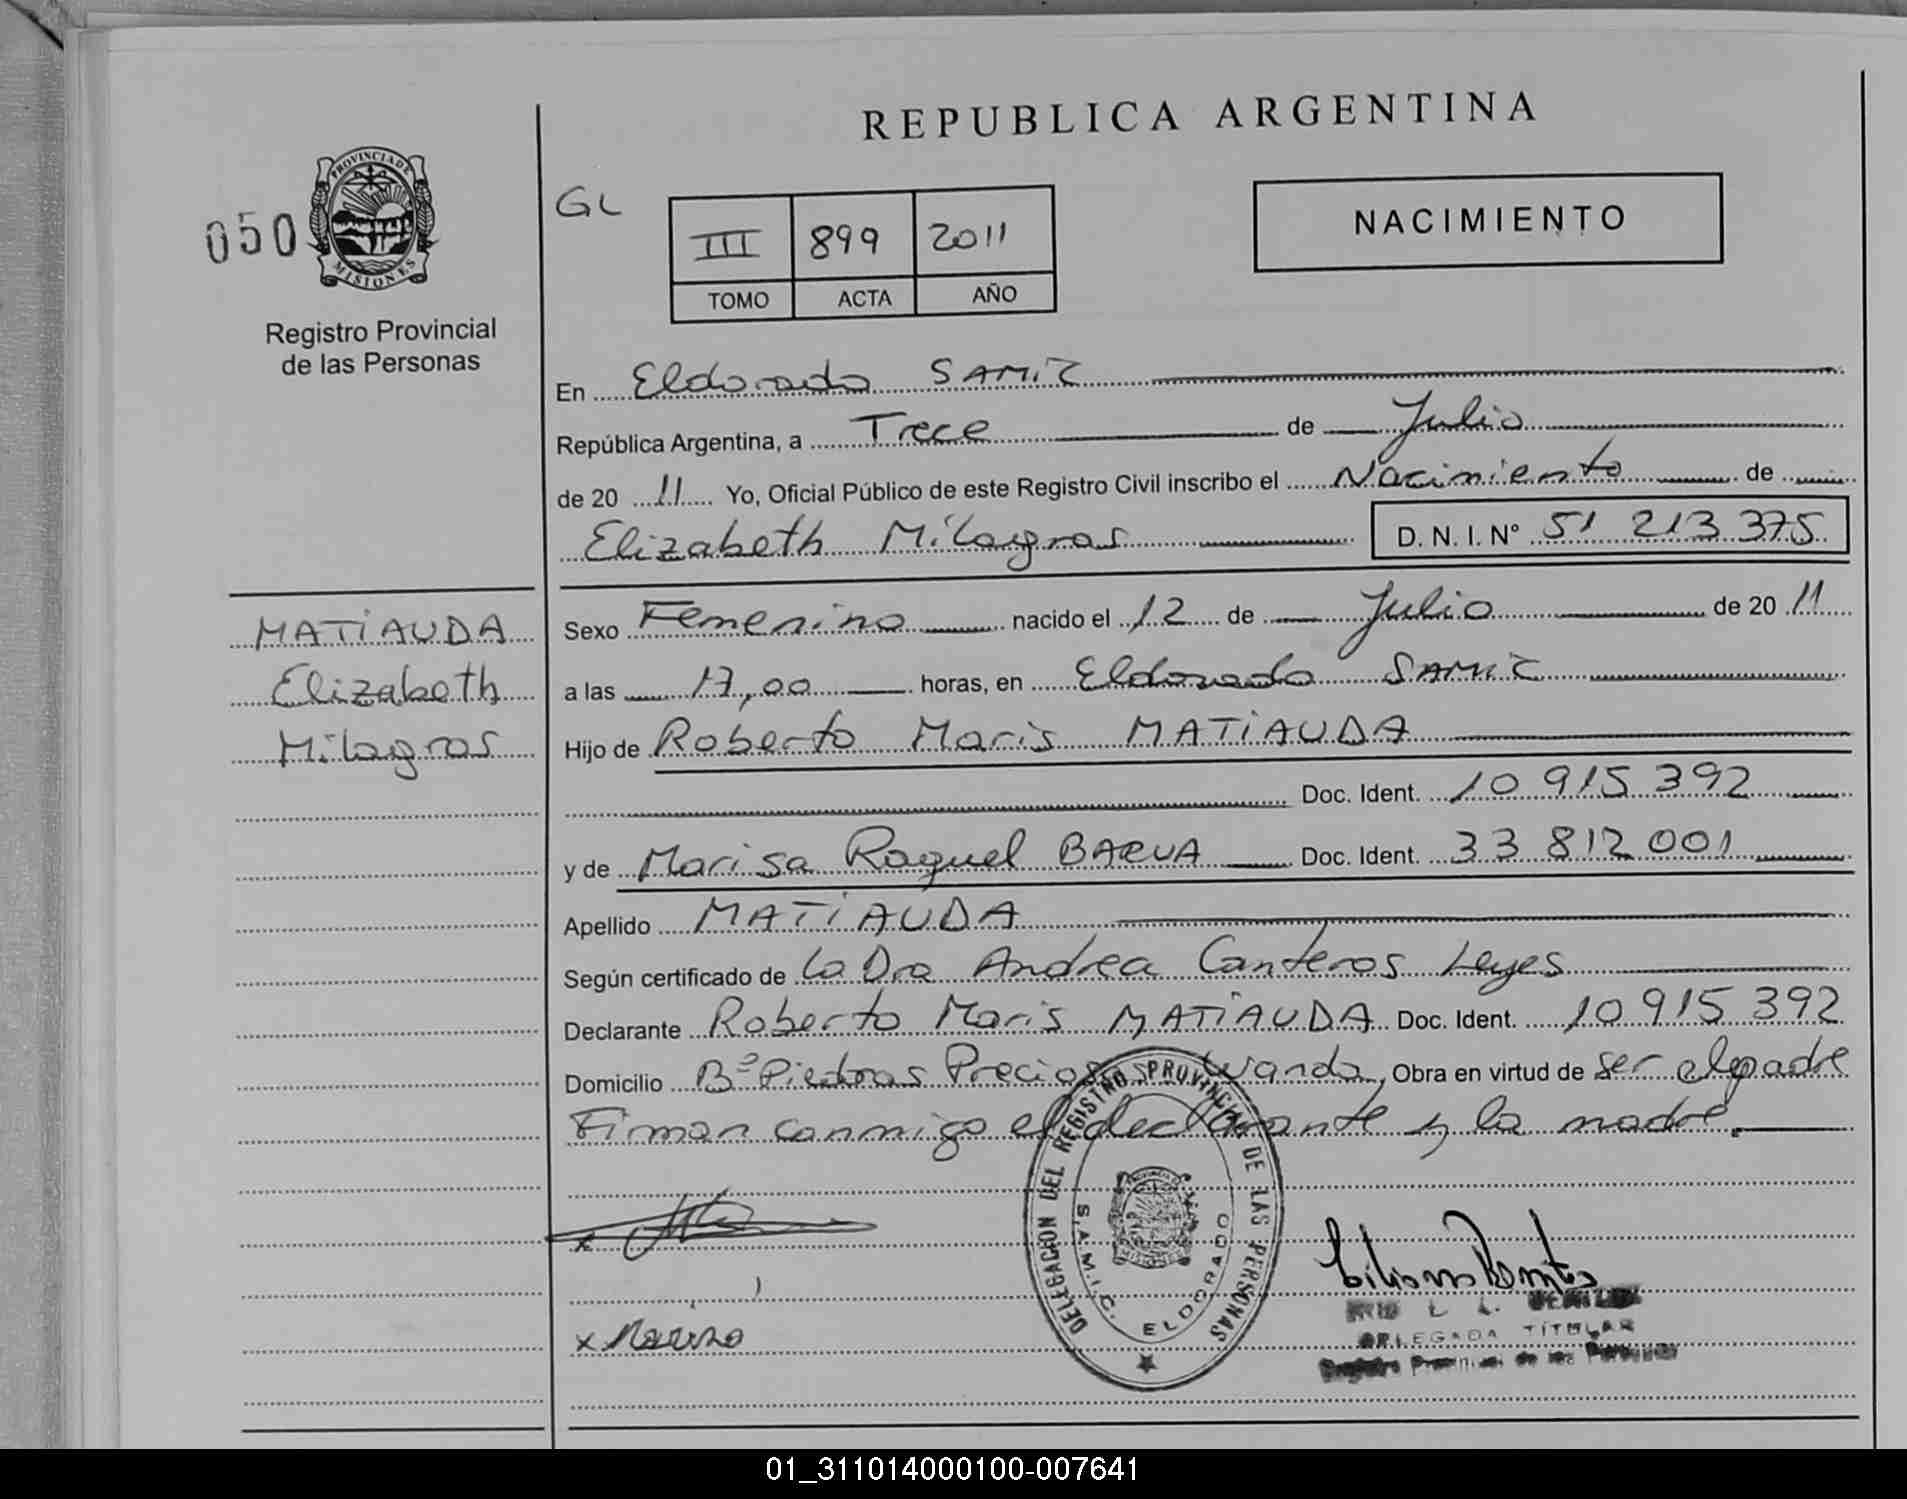 REPUBLICA ARGENTINA
050
PROVINCIA DE MISIONES
Registro Provincial
de las Personas
GL
III 899 2011
TOMO ACTA AÑO
NACIMIENTO
En Eldorado SAMIC
República Argentina, a Trece de Julio
de 20 11 Yo, Oficial Público de este Registro Civil inscribo el Nacimiento de
Elizabeth Milagros D. N. I. Nº 51 213 375
MATIAUDA
Elizabeth
Milagros
Sexo Femenino nacido el 12 de Julio de 20 11
a las 17,00 horas, en Eldorado SAMIC
Hijo de Roberto Maris MATIAUDA
Doc. Ident. 10 915 392
y de Marisa Raquel BARUA Doc. Ident. 33 812 001
Apellido MATIAUDA
Según certificado de la Dra Andrea Canteros Leyes
Declarante Roberto Maris MATIAUDA Doc. Ident. 10 915 392
Domicilio Bº Piedras Preciosas Wanda, Obra en virtud de ser el padre
Firman conmigo el declarante y la madre.
DELEGACION DEL REGISTRO PROVINCIAL DE LAS PERSONAS
S.A.M.I.C. ELDORADO
MISIONES
x
x
DELEGADA TITULAR
Registro Provincial de las Personas
01_311014000100-007641